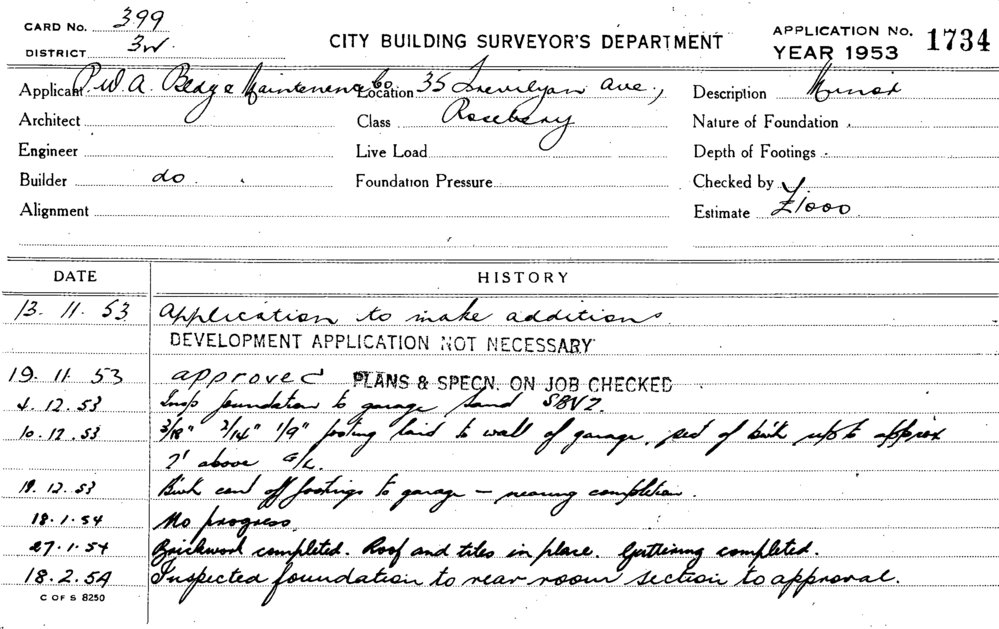 CARD No. 399
DISTRICT 3W.
CITY BUILDING SURVEYOR'S DEPARTMENT
APPLICATION No. 1734
YEAR 1953
Applicant P.W.A. Bldg & Maintenence Co
Location 35 Trevilyan Ave.,
Description Minor
Architect
Class Rosebery
Nature of Foundation
Engineer
Live Load
Depth of Footings
Builder do.
Foundation Pressure
Checked by
Alignment
Estimate £1000
DATE HISTORY
13. 11. 53 Application to make additions.
DEVELOPMENT APPLICATION NOT NECESSARY
19. 11 53 approved PLANS & SPECN. ON JOB CHECKED
4. 12. 53 Insp foundation to garage sand
10. 12. 53 3/18" 2/14" 1/9" footing laid to wall of garage. of bwk up to approx
2' above G/L.
19. 12. 53 Bwk off footings to garage — nearing completion.
18. 1. 54 No progress.
27. 1. 54 Brickwork completed. Roof and tiles in place. Guttering completed.
18. 2. 54 Inspected foundation to rear room section to approval.
C OF S 8250